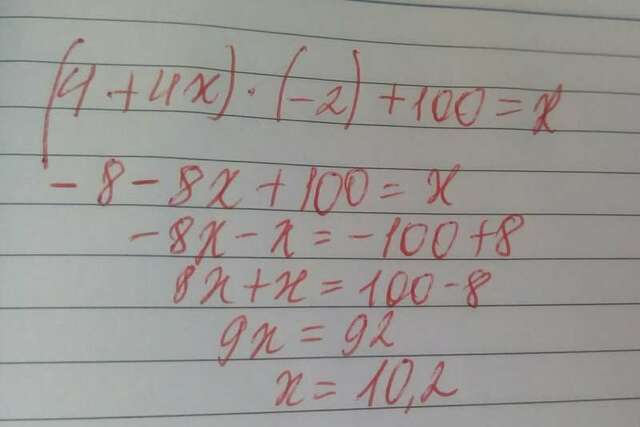 (4+4x)·(-2)+100=x
-8-8x+100=x
-8x-x=-100+8
8x+x=100-8
9x=92
x=10,2